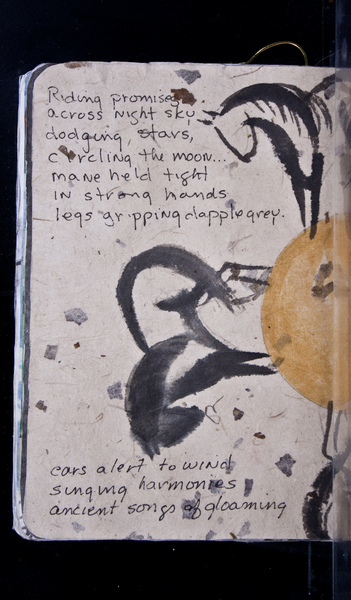 Riding promises...
across night sky
dodging, stars,
circling the moon...
mane held tight
in strong hands
legs gripping dapple grey.
ears alert to wind
singing harmonies
ancient songs of gloaming